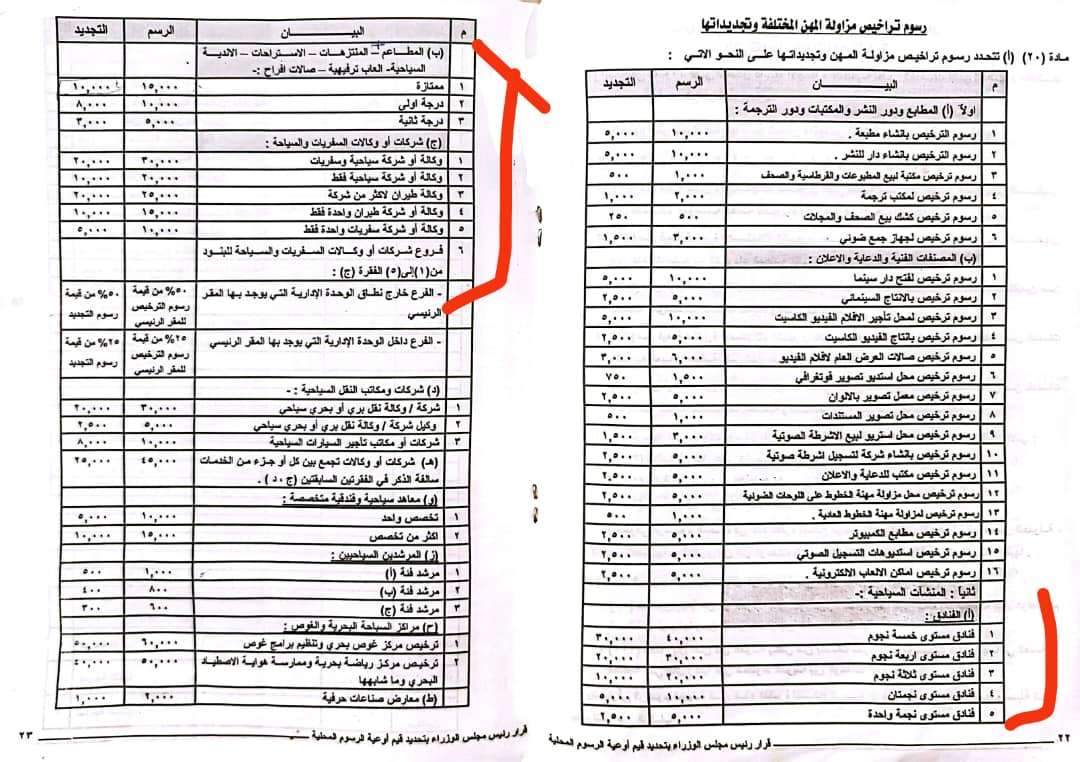 رسوم تراخيص مزاولة المهن المختلفة وتجديداتها
مادة (٢٠) (أ) تتحدد رسوم تراخيص مزاولة المهن وتجديداتها على النحو الاتي :
م البيـــــان الرسم التجديد
اولاً (أ) المطابع ودور النشر والمكتبات ودور الترجمة :
١ رسوم الترخيص بانشاء مطبعة . ١٠,٠٠٠ ٥,٠٠٠
٢ رسوم الترخيص بانشاء دار للنشر . ١٠,٠٠٠ ٥,٠٠٠
٣ رسوم ترخيص مكتبة لبيع المطبوعات والقرطاسية والصحف ١,٠٠٠ ٥٠٠
٤ رسوم ترخيص لمكتب ترجمة ٢,٠٠٠ ١,٠٠٠
٥ رسوم ترخيص كشك بيع الصحف والمجلات ٥٠٠ ٢٥٠
٦ رسوم ترخيص لجهاز جمع ضوئي ٣,٠٠٠ ١,٥٠٠
(ب) المصنفات الفنية والدعاية والاعلان :
١ رسوم ترخيص لفتح دار سينما ١٠,٠٠٠ ٥,٠٠٠
٢ رسوم ترخيص بالانتاج السينمائي ٥,٠٠٠ ٢,٥٠٠
٣ رسوم ترخيص لمحل تأجير الافلام الفيديو الكاسيت ١٠,٠٠٠ ٥,٠٠٠
٤ رسوم ترخيص بانتاج الفيديو الكاسيت ٥,٠٠٠ ٢,٥٠٠
٥ رسوم ترخيص صالات العرض العام لافلام الفيديو ٦,٠٠٠ ٣,٠٠٠
٦ رسوم ترخيص محل استديو تصوير فوتغرافي ١,٥٠٠ ٧٥٠
٧ رسوم ترخيص معمل تصوير بالالوان ٥,٠٠٠ ٢,٥٠٠
٨ رسوم ترخيص محل تصوير المستندات ١,٠٠٠ ٥٠٠
٩ رسوم ترخيص محل استريو لبيع الاشرطة الصوتية ٣,٠٠٠ ١,٥٠٠
١٠ رسوم ترخيص بانشاء شركة لتسجيل اشرطة صوتية ٥,٠٠٠ ٢,٥٠٠
١١ رسوم ترخيص مكتب للدعاية والاعلان ٥,٠٠٠ ٢,٥٠٠
١٢ رسوم ترخيص محل مزاولة مهنة الخطوط على اللوحات الضوئية ٥,٠٠٠ ٢,٥٠٠
١٣ رسوم ترخيص لمزاولة مهنة الخطوط العادية . ١,٠٠٠ ٥٠٠
١٤ رسوم ترخيص مطابع الكمبيوتر ٥,٠٠٠ ٢,٥٠٠
١٥ رسوم ترخيص استديوهات التسجيل الصوتي ٥,٠٠٠ ٢,٥٠٠
١٦ رسوم ترخيص اماكن الالعاب الالكترونية . ٥,٠٠٠ ٢,٥٠٠
ثانياً : المنشآت السياحية :-
(أ) الفنادق :
١ فنادق مستوى خمسة نجوم ٤٠,٠٠٠ ٣٠,٠٠٠
٢ فنادق مستوى اربعة نجوم ٣٠,٠٠٠ ٢٠,٠٠٠
٣ فنادق مستوى ثلاثة نجوم ٢٠,٠٠٠ ١٠,٠٠٠
٤ فنادق مستوى نجمتان ١٠,٠٠٠ ٥,٠٠٠
٥ فنادق مستوى نجمة واحدة ٥,٠٠٠ ٢,٥٠٠
٢٢ قرار رئيس مجلس الوزراء بتحديد قيم أوعية الرسوم المحلية
م البيـــــان الرسم التجديد
(ب) المطاعم – المنتزهات – الاستراحات – الاندية
السياحية- العاب ترفيهية – صالات افراح :-
١ ممتازة ١٥,٠٠٠ ١٠,٠٠٠
٢ درجة اولى ١٠,٠٠٠ ٨,٠٠٠
٣ درجة ثانية ٥,٠٠٠ ٣,٠٠٠
(ج) شركات أو وكالات السفريات والسياحة :
١ وكالة أو شركة سياحية وسفريات ٣٠,٠٠٠ ٢٠,٠٠٠
٢ وكالة أو شركة سياحية فقط ٢٠,٠٠٠ ١٠,٠٠٠
٣ وكالة طيران لاكثر من شركة ٢٥,٠٠٠ ٢٠,٠٠٠
٤ وكالة أو شركة طيران واحدة فقط ١٥,٠٠٠ ١٠,٠٠٠
٥ وكالة أو شركة سفريات واحدة فقط ١٠,٠٠٠ ٥,٠٠٠
٦ فروع شركات أو وكالات السفريات والسياحة للبنود
من(١)إلى(٥) الفقرة (ج) :
- الفرع خارج نطاق الوحدة الإدارية التي يوجد بها المقر ٥٠% من قيمة ٥٠% من قيمة
الرئيسي رسوم الترخيص رسوم التجديد
للمقر الرئيسي
- الفرع داخل الوحدة الإدارية التي يوجد بها المقر الرئيسي ٢٥% من قيمة ٢٥% من قيمة
رسوم الترخيص رسوم التجديد
للمقر الرئيسي
(د) شركات ومكاتب النقل السياحية : -
١ شركة / وكالة نقل بري أو بحري سياحي ٣٠,٠٠٠ ٢٠,٠٠٠
٢ وكيل شركة / وكالة نقل بري أو بحري سياحي ٥,٠٠٠ ٢,٥٠٠
٣ شركات أو مكاتب تأجير السيارات السياحية ١٠,٠٠٠ ٨,٠٠٠
(هـ) شركات أو وكالات تجمع بين كل أو جزء من الخدمات ٤٥,٠٠٠ ٢٥,٠٠٠
سالفة الذكر في الفقرتين السابقتين (ج ، د) .
(و) معاهد سياحية وفندقية متخصصة :
١ تخصص واحد ١٠,٠٠٠ ٥,٠٠٠
٢ اكثر من تخصص ١٥,٠٠٠ ١٠,٠٠٠
(ز) المرشدين السياحيين :
١ مرشد فئة (أ) ١,٠٠٠ ٥٠٠
٢ مرشد فئة (ب) ٨٠٠ ٤٠٠
٣ مرشد فئة (ج) ٦٠٠ ٣٠٠
(ح) مراكز السياحة البحرية والغوص :
١ ترخيص مركز غوص بحري وتنظيم برامج غوص ٦٠,٠٠٠ ٥٠,٠٠٠
٢ ترخيص مركز رياضة بحرية وممارسة هواية الاصطياد ٥٠,٠٠٠ ٤٠,٠٠٠
البحري وما شابهها
(ط) معارض صناعات حرفية ٢,٠٠٠ ١,٠٠٠
قرار رئيس مجلس الوزراء بتحديد قيم أوعية الرسوم المحلية ٢٣